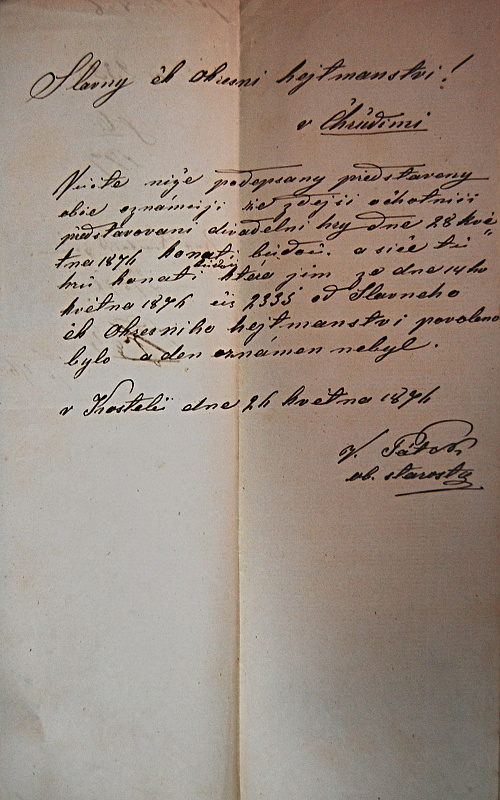 Slavny ck Okresni hejtmanstvi!
v Chrudimi
níže podepsany představeny
obce oznámuji že zdejší ochotnici
představovani divadelní hry dne 28 kvě-
tna 1876 konati budou. a siće tu
hru konati budou ktera jim ze dne 14ho
května 1876 čis 2335 od Slavneho
ck Okresniho hejtmanstvi povoleno
bylo a den oznámen nebyl.
v Kostelci dne 26 května 1876
V.
ob. starosta